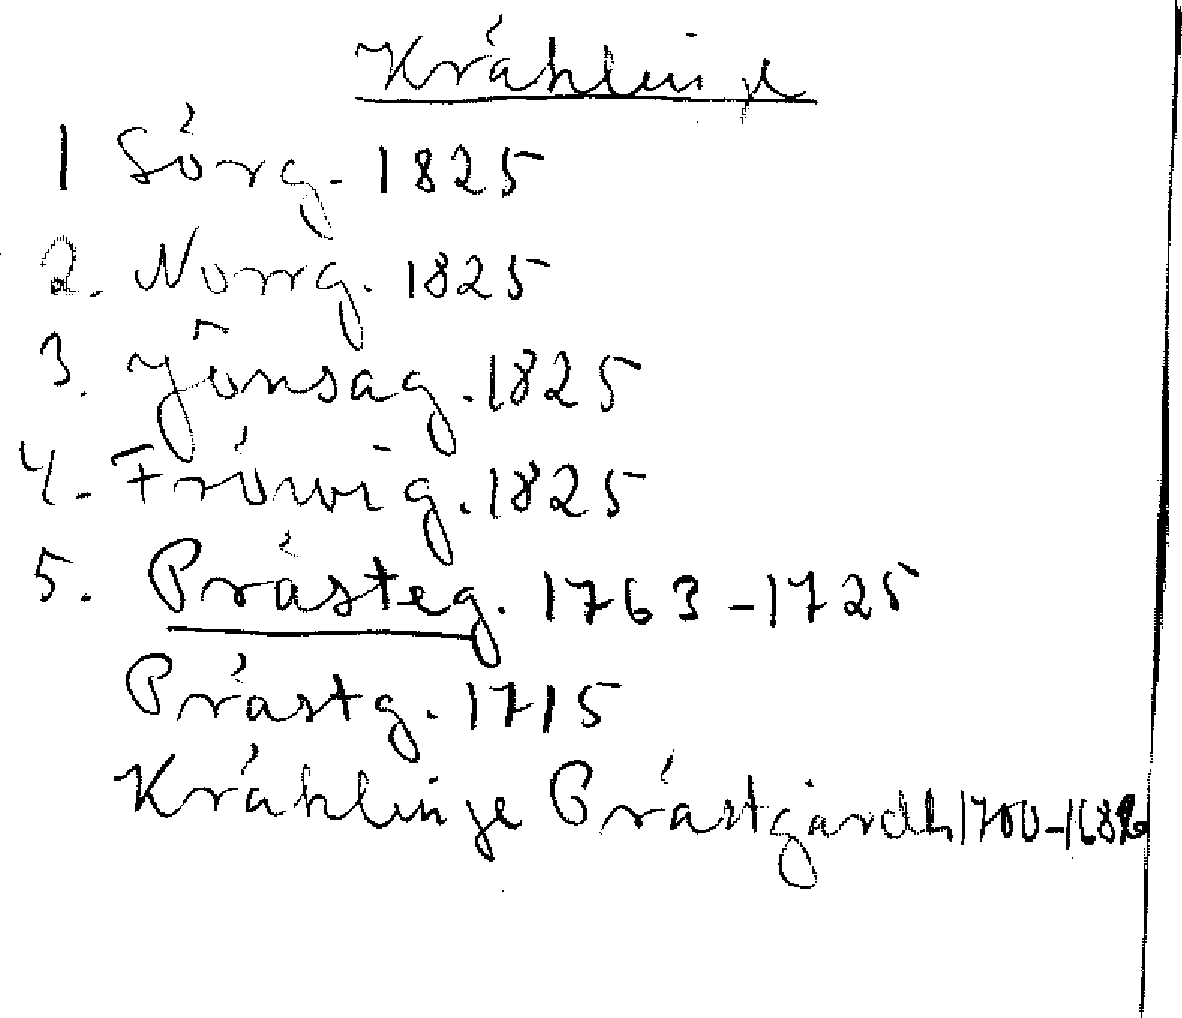 Kräklinge
1 Sörg. 1825
2. Norrg. 1825
3. Jönsag. 1825
4. Frövig. 1825
5. Prästeg. 1763-1725
Prästg. 1715
Kräklinge Prästgårdh 1700-1686